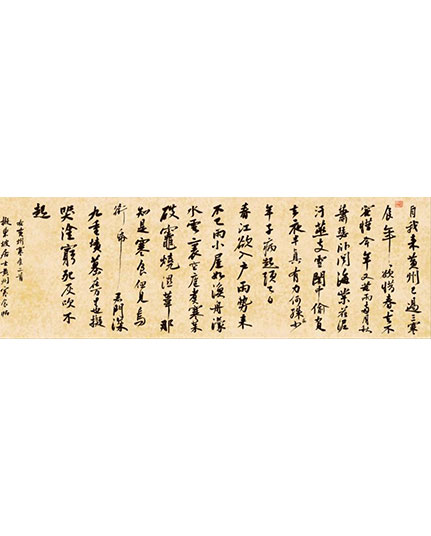 自我来黄州已過三寒
食年〻欲惜春去不
容惜今年又苦雨兩月秋
蕭瑟卧聞海棠花泥
汙燕支雪闇中偷負
去夜半真有力何殊少
年子病起頭已
春江欲入戶雨勢来
不已雨小屋如漁舟濛
水雲裏空庖煮寒菜
破竈燒濕葦那
知是寒食但見烏
銜帋 君門深
九重墳墓萬里也擬
哭塗窮死灰吹不
起
右黄州寒食二首
東坡居士黄州寒食帖